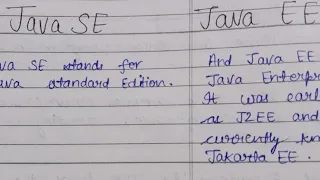 Java SE
va SE stands for
ava standard Edition.
Java EE
And Java EE
Java Enterpr
It was earl
as J2EE and
currently kn
Jakarta EE.